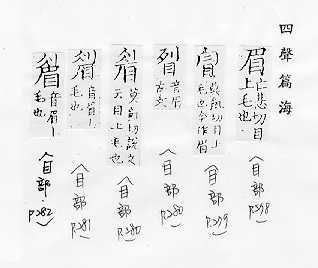 四聲篇海
眉 亡悲切目
上毛也
(目部 P278)
切目上
毛也今作眉
(目部 P279)
音眉
古文
(目部 P280)
切說文
云目上毛也
(目部 P280)
音眉丨
毛也
(目部 P281)
音眉丨
毛也
(目部 P282)